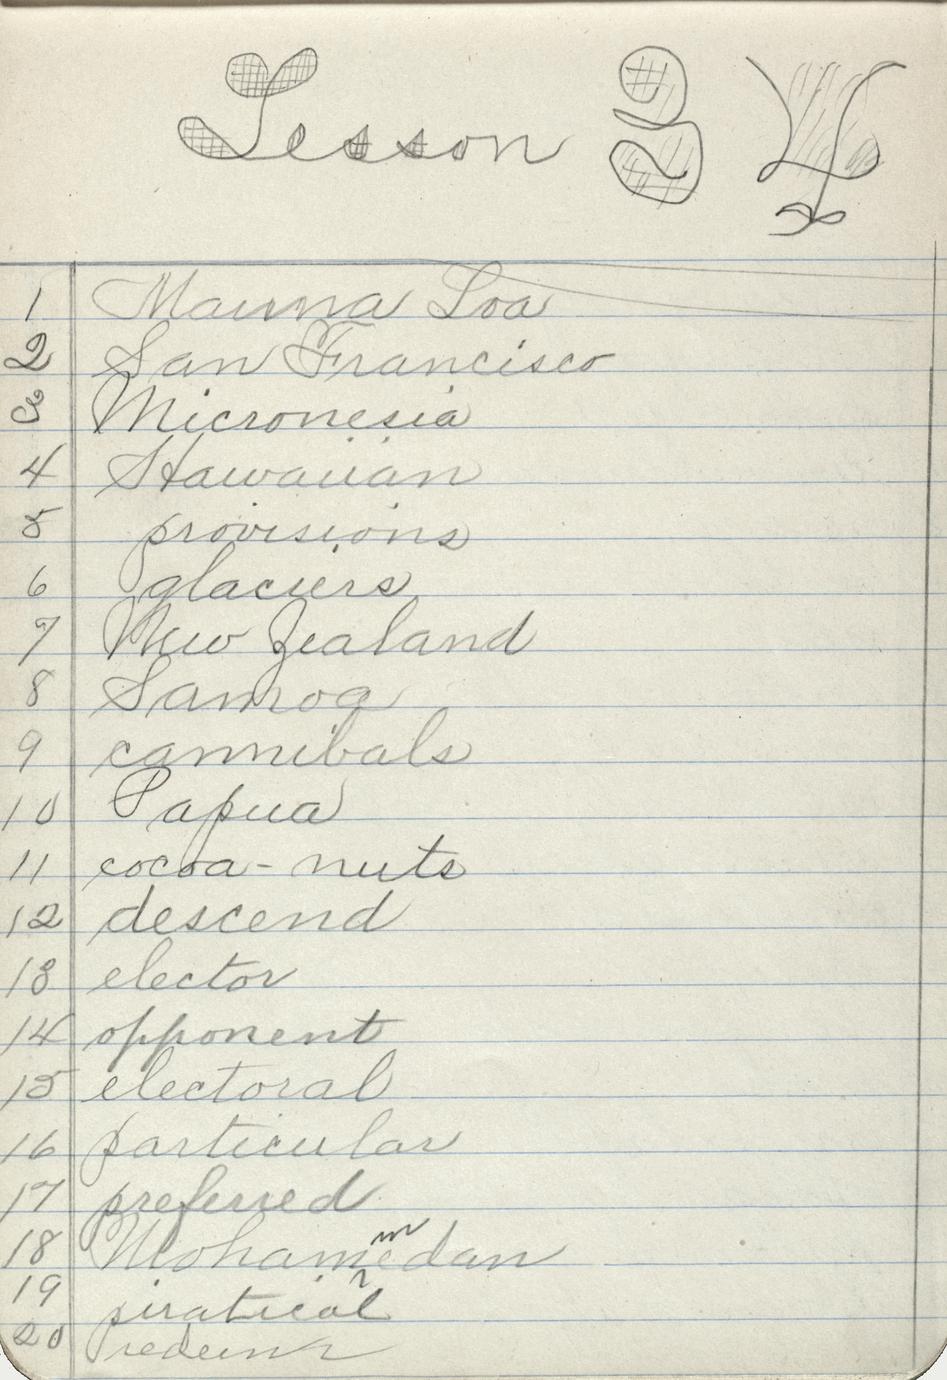 Lesson 34
1 Mauna Loa
2 San Francisco
3 Micronesia
4 Hawaiian
5 provisions
6 glaciers
7 New Zealand
8 Samoa
9 cannibals
10 Papua
11 cocoa-nuts
12 descend
13 elector
14 opponent
15 electoral
16 particular
17 preferred
18 Mohammedan
19 piratical
20